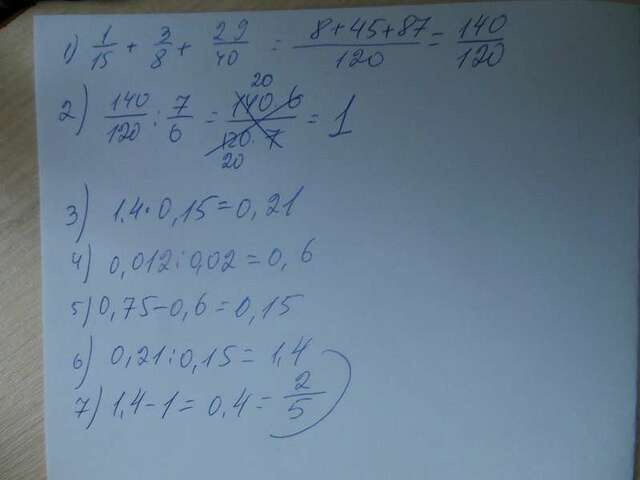 1) 1/15 + 3/8 + 29/40 = 8+45+87/120 = 140/120
2) 140/120 : 7/6 = 20 140·6/120·7 20 = 1
3) 1,4·0,15=0,21
4) 0,012:0,02=0,6
5) 0,75-0,6=0,15
6) 0,21:0,15=1,4
7) 1,4-1=0,4=2/5